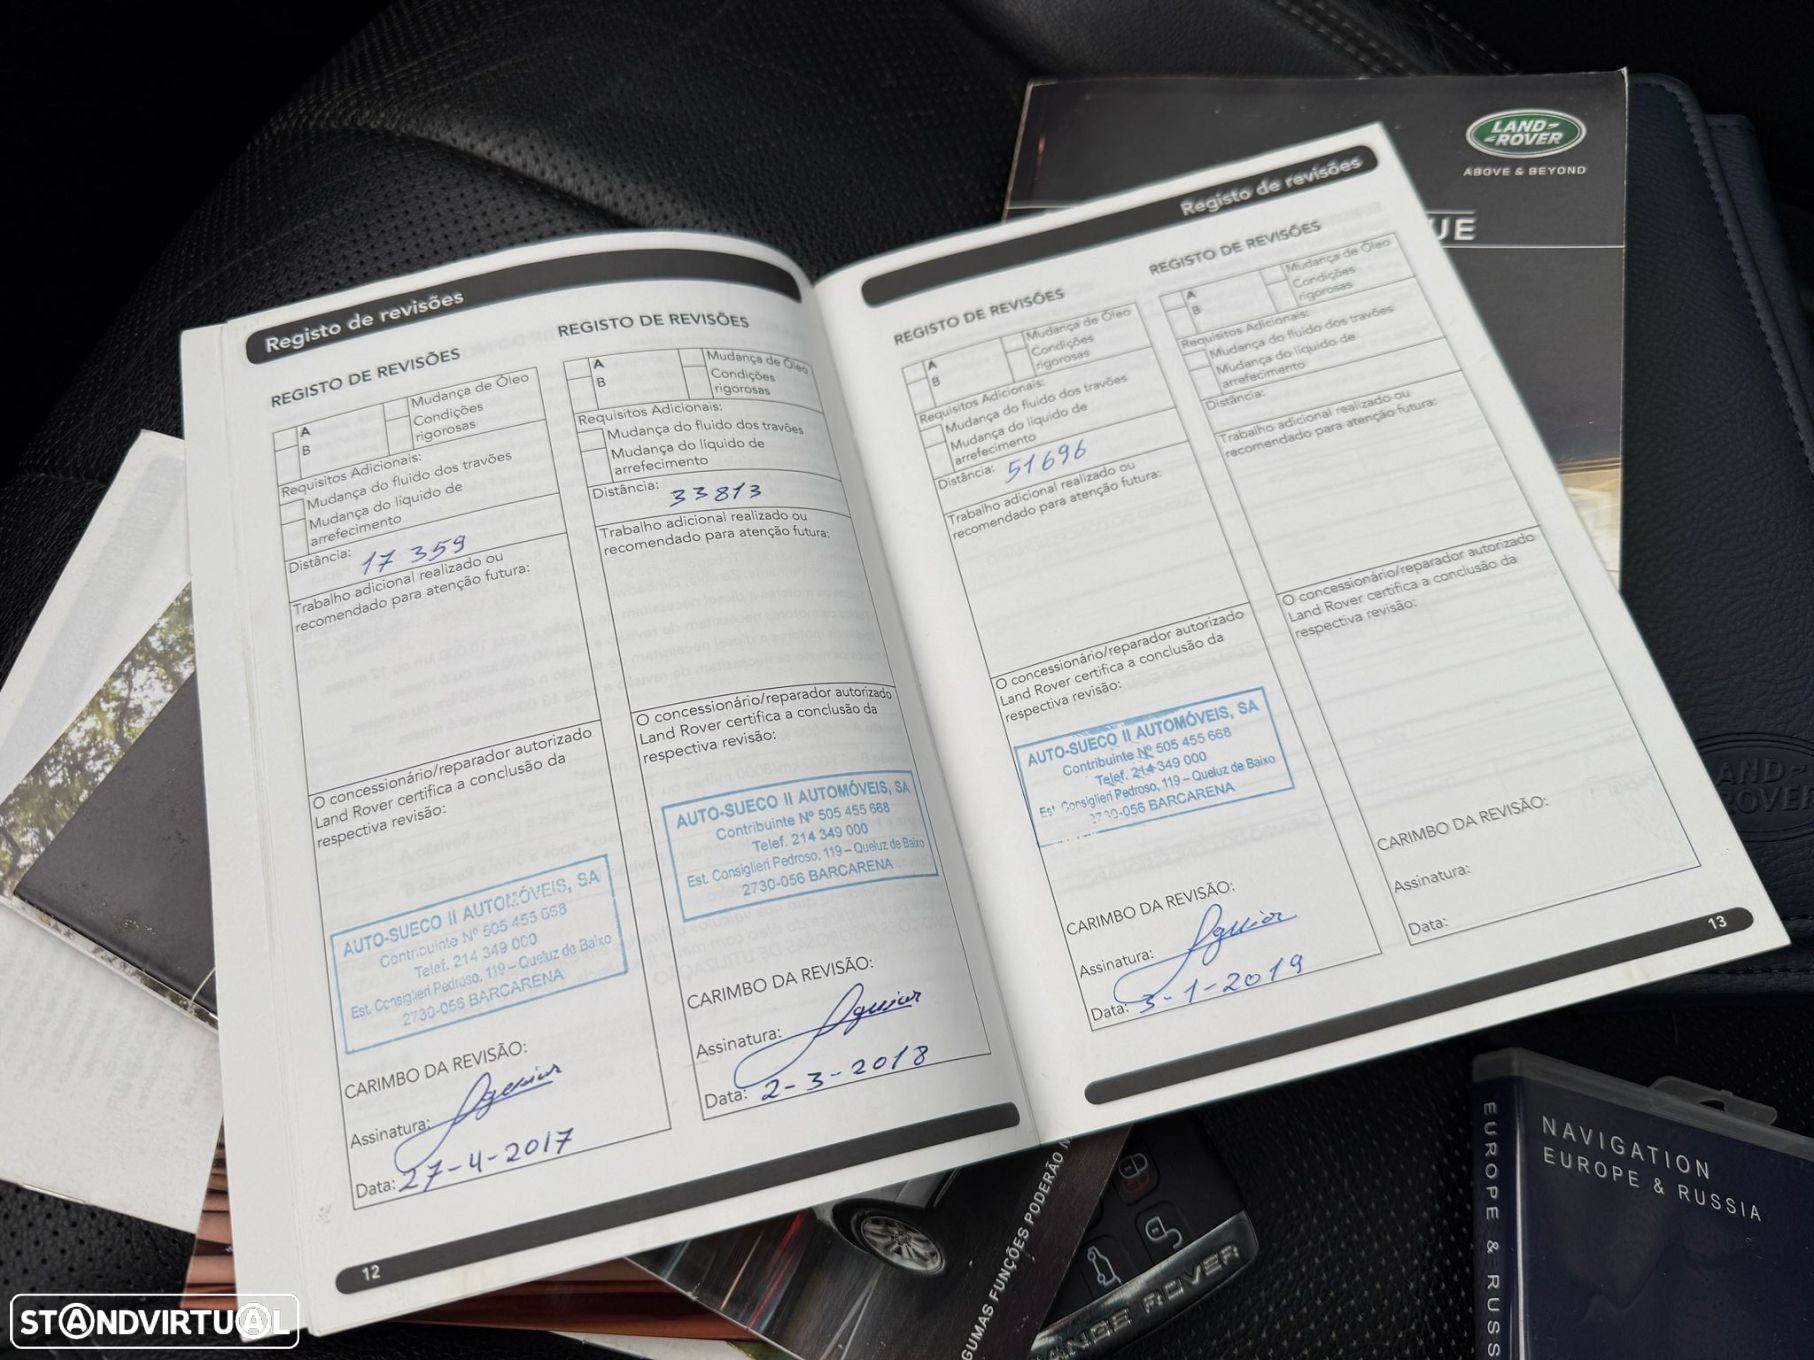 LAND-
-ROVER
ABOVE & BEYOND
UE
Registo de revisões
REGISTO DE REVISÕES
A
B
Mudança de Óleo
Condições
rigorosas
Requisitos Adicionais:
Mudança do fluido dos travões
Mudança do líquido de
arrefecimento
Distância: 17 359
Trabalho adicional realizado ou
recomendado para atenção futura:
O concessionário/reparador autorizado
Land Rover certifica a conclusão da
respectiva revisão:
AUTO-SUECO II AUTOMÓVEIS, SA
Contribuinte Nº 505 455 668
Telef. 214 349 000
Est. Consiglieri Pedroso, 119 – Queluz de Baixo
2730-056 BARCARENA
CARIMBO DA REVISÃO:
Assinatura:
Data: 27-4-2017
REGISTO DE REVISÕES
A
B
Mudança de Óleo
Condições
rigorosas
Requisitos Adicionais:
Mudança do fluido dos travões
Mudança do líquido de
arrefecimento
Distância: 33813
Trabalho adicional realizado ou
recomendado para atenção futura:
O concessionário/reparador autorizado
Land Rover certifica a conclusão da
respectiva revisão:
AUTO-SUECO II AUTOMÓVEIS, SA
Contribuinte Nº 505 455 668
Telef. 214 349 000
Est. Consiglieri Pedroso, 119 – Queluz de Baixo
2730-056 BARCARENA
CARIMBO DA REVISÃO:
Assinatura:
Data: 2-3-2018
12
Registo de revisões
REGISTO DE REVISÕES
A
B
Mudança de Óleo
Condições
rigorosas
Requisitos Adicionais:
Mudança do fluido dos travões
Mudança do líquido de
arrefecimento
Distância: 51696
Trabalho adicional realizado ou
recomendado para atenção futura:
O concessionário/reparador autorizado
Land Rover certifica a conclusão da
respectiva revisão:
AUTO-SUECO II AUTOMÓVEIS, SA
Contribuinte Nº 505 455 668
Telef. 214 349 000
Est. Consiglieri Pedroso, 119 – Queluz de Baixo
2730-056 BARCARENA
CARIMBO DA REVISÃO:
Assinatura:
Data: 3-1-2019
REGISTO DE REVISÕES
A
B
Mudança de Óleo
Condições
rigorosas
Requisitos Adicionais:
Mudança do fluido dos travões
Mudança do líquido de
arrefecimento
Distância:
Trabalho adicional realizado ou
recomendado para atenção futura:
O concessionário/reparador autorizado
Land Rover certifica a conclusão da
respectiva revisão:
CARIMBO DA REVISÃO:
Assinatura:
Data:
13
AND-
ROVER
GUMAS FUNÇÕES PODERÃO
ANGE ROVER
EUROPE & RUSS
NAVIGATION
EUROPE & RUSSIA
STANDVIRTUAL